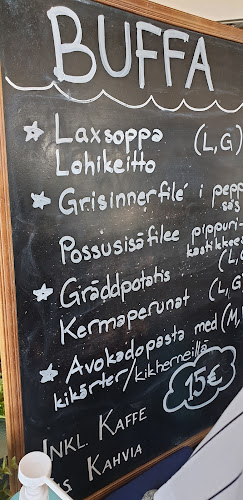 BUFFA
Laxsoppa (L, G)
Lohikeitto
Grisinnerfilé i pepp
sås
Possusisäfilee pippuri-
kastikkee
Gräddpotatis (L,
Kermaperunat (L, G
Avokadopasta med (M,
kikärter/kikherneillä
15€
INKL. KAFFE
KAHVIA